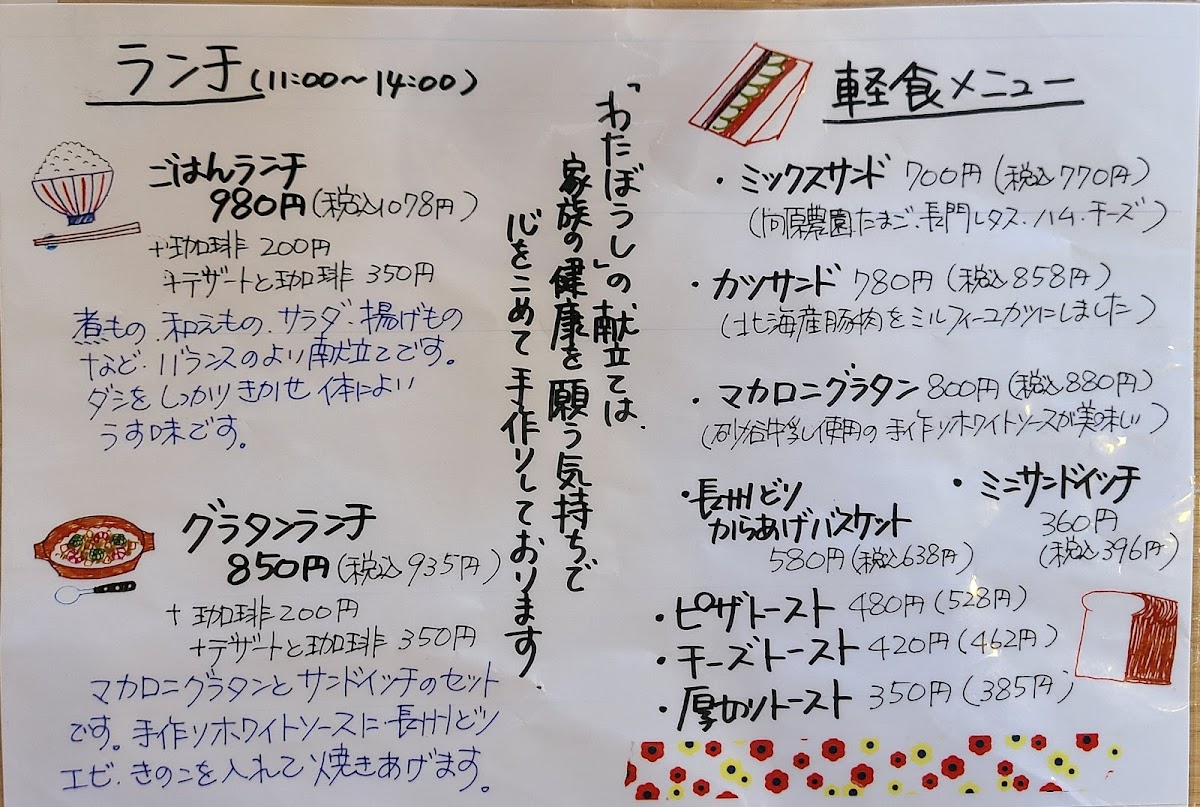 ランチ(11:00～14:00)
ごはんランチ
980円(税込1078円)
+珈琲 200円
+デザートと珈琲 350円
煮もの、和えもの、サラダ、揚げもの
など、バランスのよい献立てです。
ダシをしっかりきかせ 体によい
うす味です。
グラタンランチ
850円(税込935円)
+珈琲200円
+デザートと珈琲 350円
マカロニグラタンとサンドイッチのセット
です。手作りホワイトソースに長州どり
エビ、きのこを入れて焼きあげます。
「わたぼうし」の献立ては、
家族の健康を願う気持ちで
心をこめて手作りしております。
軽食メニュー
・ミックスサンド 700円(税込770円)
(向原農園たまご、長門レタス、ハム、チーズ)
・カツサンド 780円(税込858円)
(北海産豚肉をミルフィーユカツにしました)
・マカロニグラタン 800円(税込880円)
(砂谷牛乳使用の手作りホワイトソースが美味しい)
・長州どり
からあげバスケット
580円(税込638円)
・ミニサンドイッチ
360円
(税込396円)
・ピザトースト 480円(528円)
・チーズトースト 420円(462円)
・厚切りトースト 350円(385円)